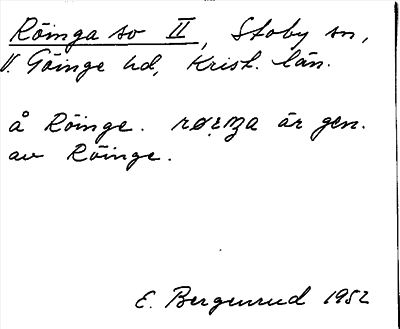 Röinga so II, Stoby sn,
V. Göinge hd, Krist. län.
å Röinge. røi̯ŋa är gen.
av Röinge.
E. Bergenrud 1952